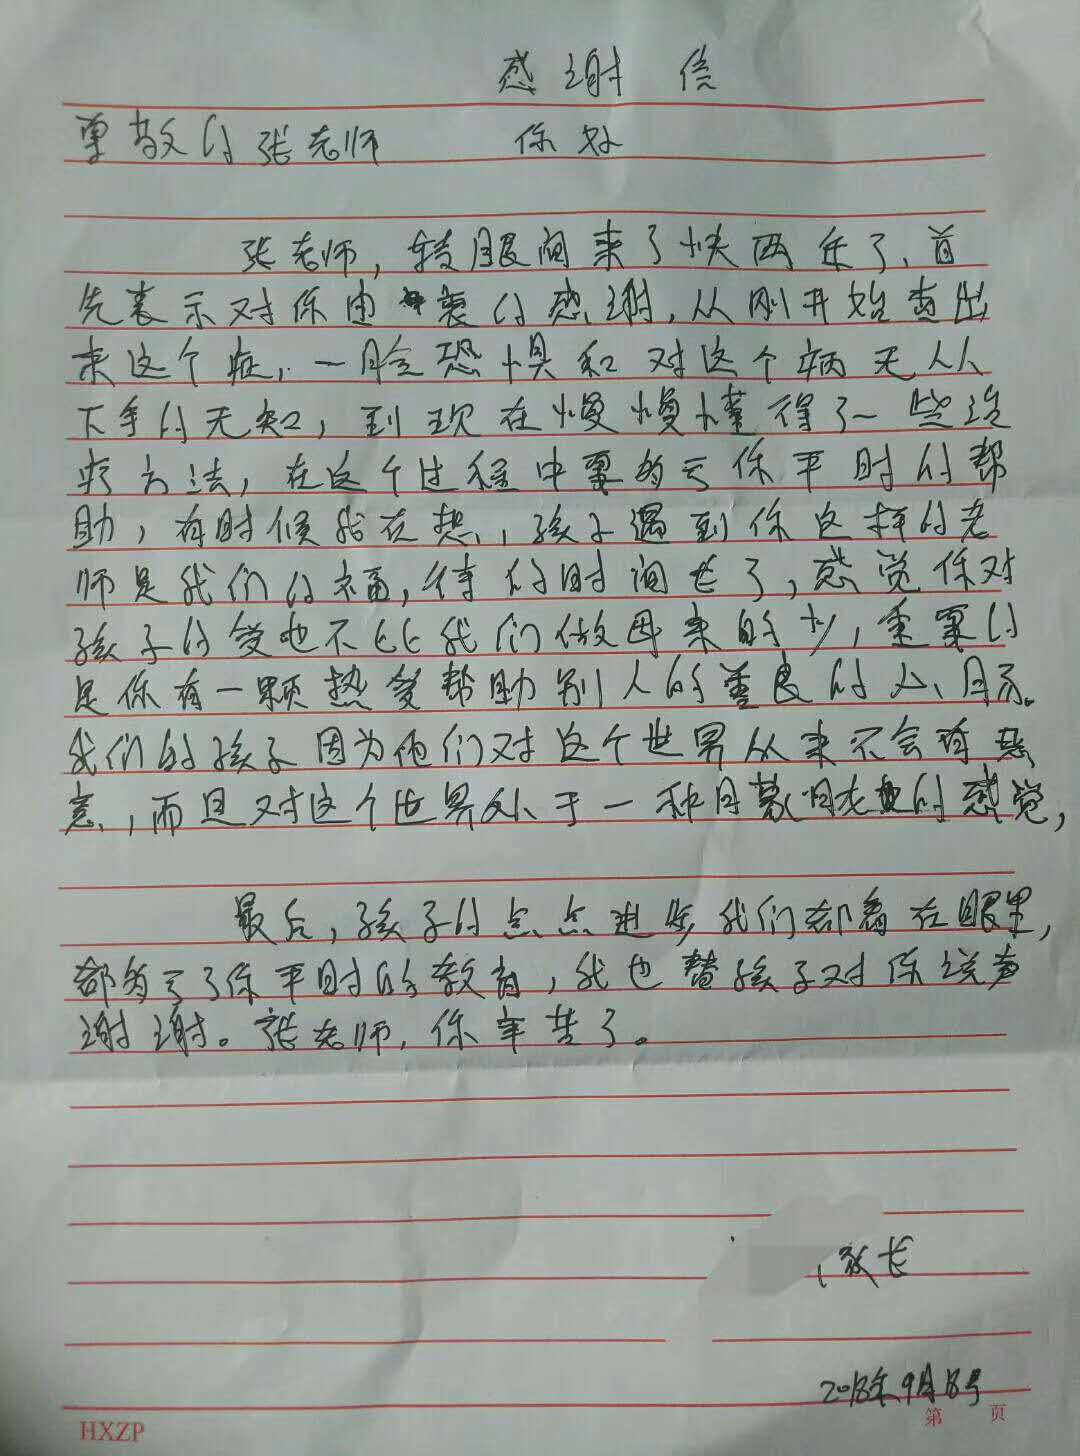 感谢信
尊敬的张老师 你好
张老师，转眼间来了快两年了、首
先表示对你由衷的感谢，从刚开始查出
来这个症，一脸恐惧和对这个病无从
下手的无知，到现在慢慢懂得了一些
方法，在这个过程中要多亏你平时的帮
助，有时候我在想，孩子遇到你这样的老
师是我们的福，待的时间长了，感觉你对
孩子的爱也不比我们做母亲的少，重要的
是你有一颗热爱帮助别人的善良的心、
我们的孩子因为他们对这个世界从来不会有恶
意，而且对这个世界处于一种朦胧的感觉，
最后，孩子的点点进步我们都看在眼里，
都多亏了你平时的教育，我也替孩子对你说声
谢谢。张老师，你辛苦了。
家长
2018年9月8号
HXZP 第 页